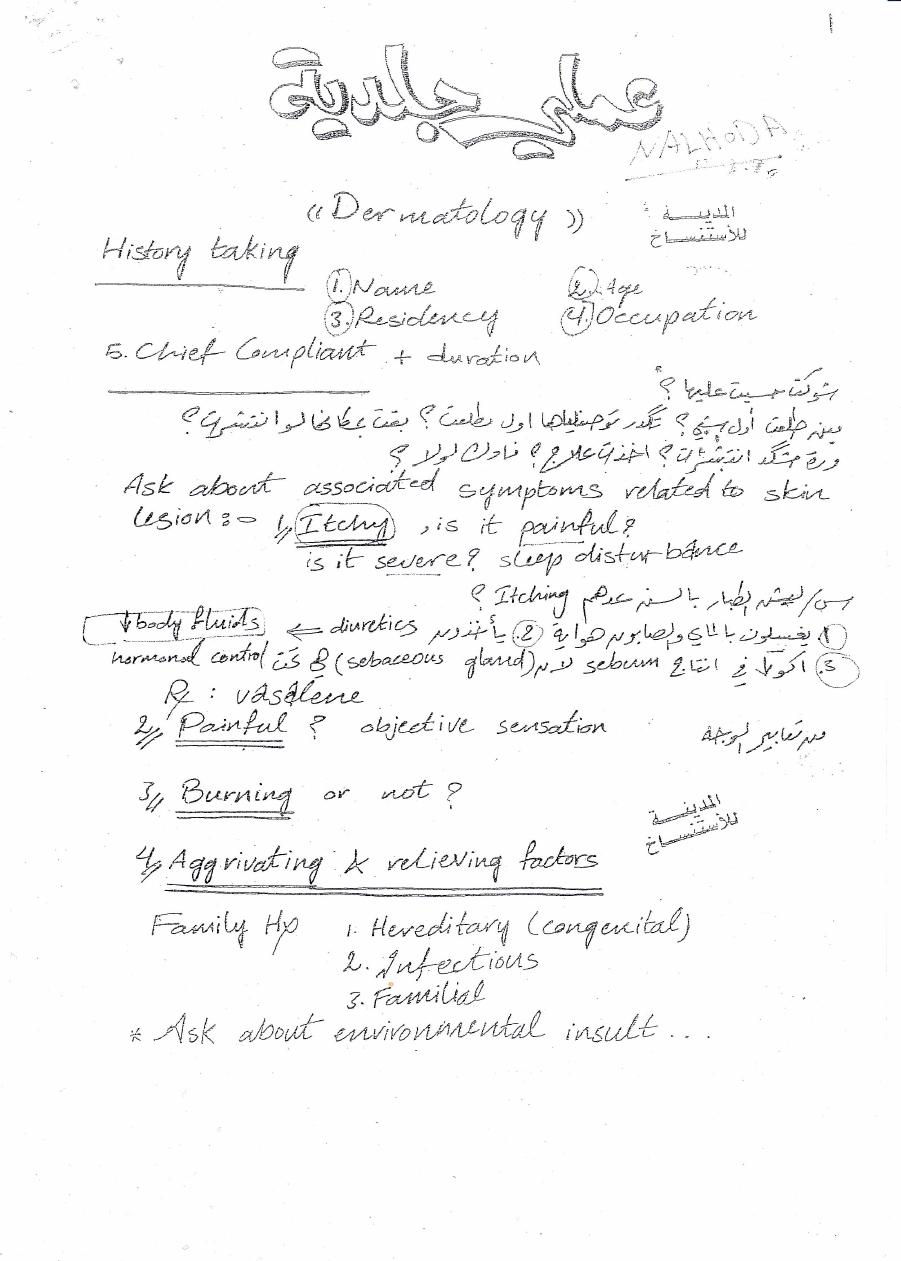 1
عملي جلدية
NALHODA
((Dermatology))
المدينة
للأستنساخ
History taking
1. Name 2. Age
3. Residency 4. Occupation
5. Chief Compliant + duration
شوكت حسيت عليها؟
وين طلعت أول شي؟ تكدر توصفلياها اول مطلعت؟ بقت بمكانها لو انتشرت؟
ورة شكد انتشرت؟ اخذت علاج؟ فادك لو لا؟
Ask about associated symptoms related to skin
lesion:- 1// Itchy, is it painful?
is it severe? sleep disturbance
س/ ليش الكبار بالسن عدهم Itching؟
1. يغسلون بالماي والصابون هواية 2. يأخذون diuretics ⇐ ↓body fluids
3. اكو في انتاج sebum لان (sebaceous gland) تحت hormonal control
Rx : vasalene
2// Painful? objective sensation من تعابير الوجه
3// Burning or not?
المدينة
للأستنساخ
4// Aggrivating & relieving factors
Family Hx 1. Hereditary (congenital)
2. Infectious
3. Familial
* Ask about environmental insult...